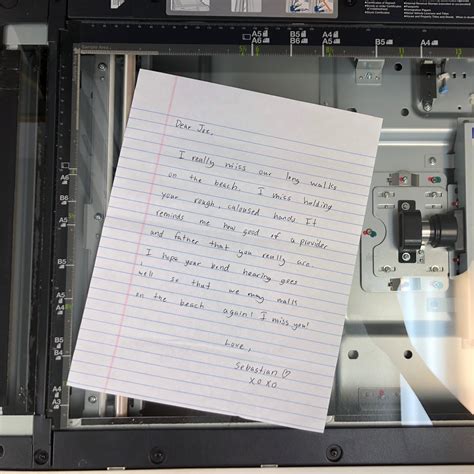 A5 B5 A5
A6 B6 A6 B5 A4
Dear Joe,
I really miss our long walks
on the beach. I miss holding
your rough, caloused hands. It
reminds me how good of a provider
and father that you really are.
I hope your bond hearing goes
well so that we may walk
on the beach again! I miss you!
Love,
Sebastian ♡
XOXO
A6
B6
A5
B5
A5
B5
A4
A3